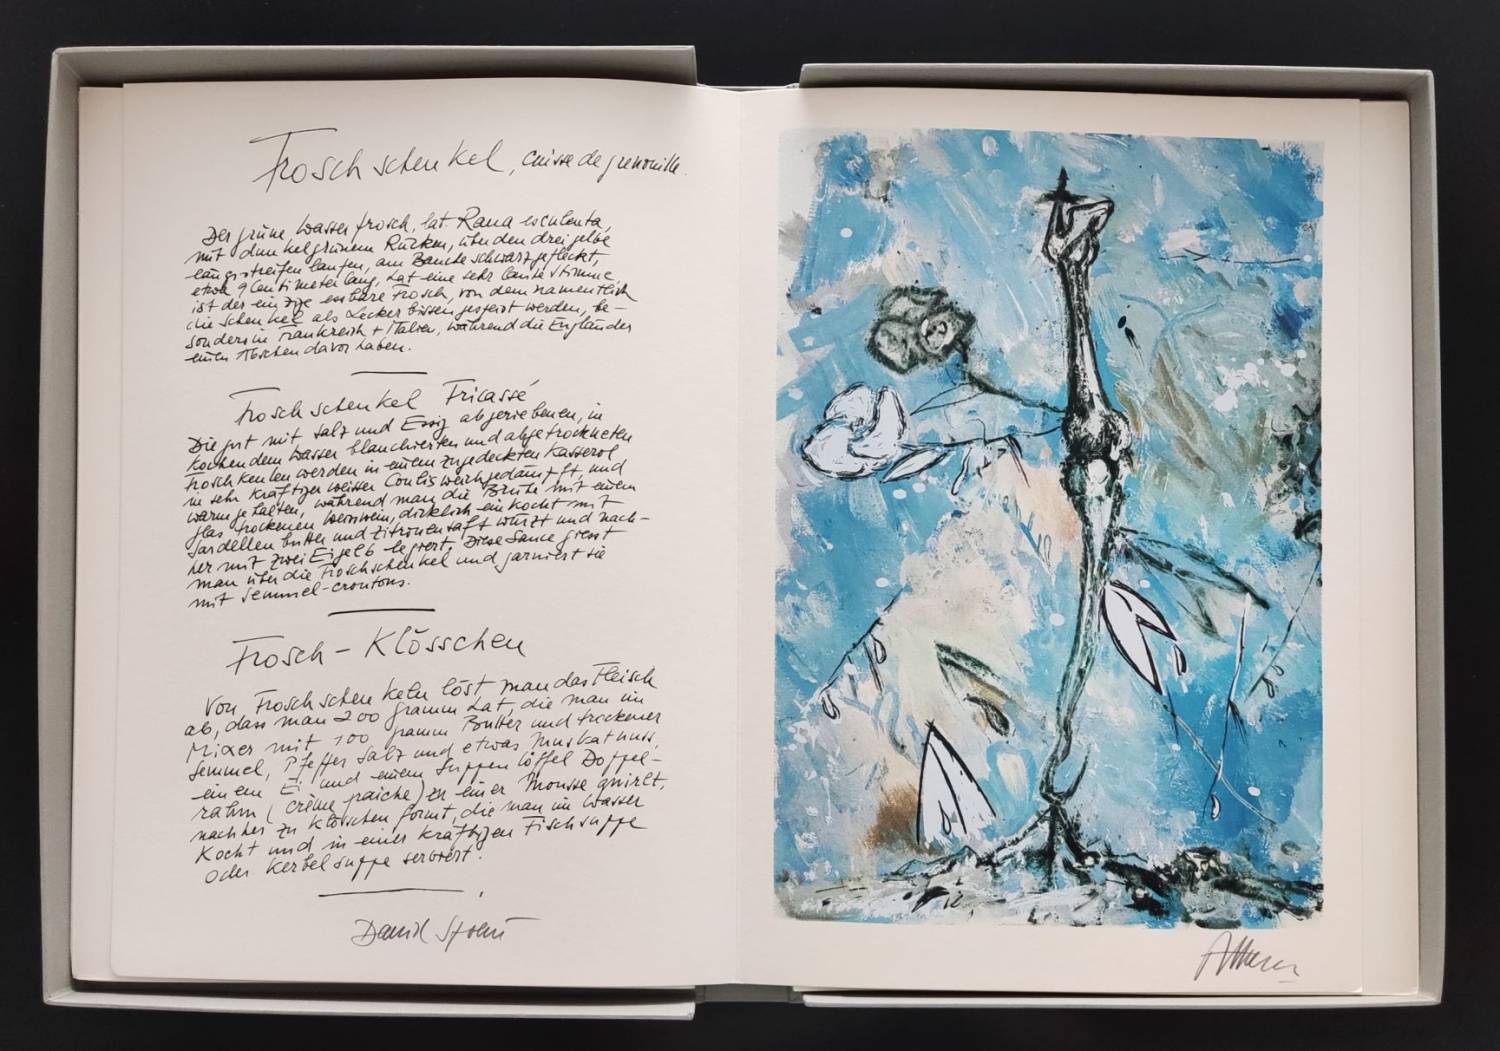 Froschschenkel, cuisse de grenouille.
Der grüne Wasserfrosch, lat. Rana esculenta,
mit dunkelgrünem Rücken, über den drei gelbe
Längsstreifen laufen, am Bauche schwarzgefleckt,
etwa 9 Centimeter lang, hat eine sehr laute Stimme,
ist der einzige essbare Frosch, von dem namentlich
die Schenkel als Leckerbissen gespeist werden, be-
sonders in Frankreich + Italien, während die Engländer
einen Abscheu davor haben.
Froschschenkel Fricassé
Die gut mit Salz und Essig abgeriebenen, in
kochendem Wasser blanchierten und abgetrockneten
Froschkeulen werden in einem zugedeckten Kasserol
in sehr kräftiger weisser Coulis weichgedämpft und
warm gehalten, während man die Brühe mit einem
Glas trockenen Weisswein, dicklich einkocht mit
Sardellenbutter und Zitronensaft würzt und nach-
her mit zwei Eigelb legiert. Diese Sauce giesst
man über die Froschschenkel und garniert sie
mit Semmel-croutons.
Frosch-Klösschen
Von Froschschenkeln löst man das Fleisch
ab, dass man 200 gramm hat, die man im
Mixer mit 100 gramm Butter und trockener
Semmel, Pfeffer Salz und etwas Muskatnuss,
einem Ei und einem Suppenlöffel Doppel-
rahm (crème fraiche) zu einer Mousse quirlt,
nachher zu Klösschen formt, die man im Wasser
kocht und in einer kräftigen Fischsuppe
oder Kerbelsuppe serviert.
Daniel Spoerri